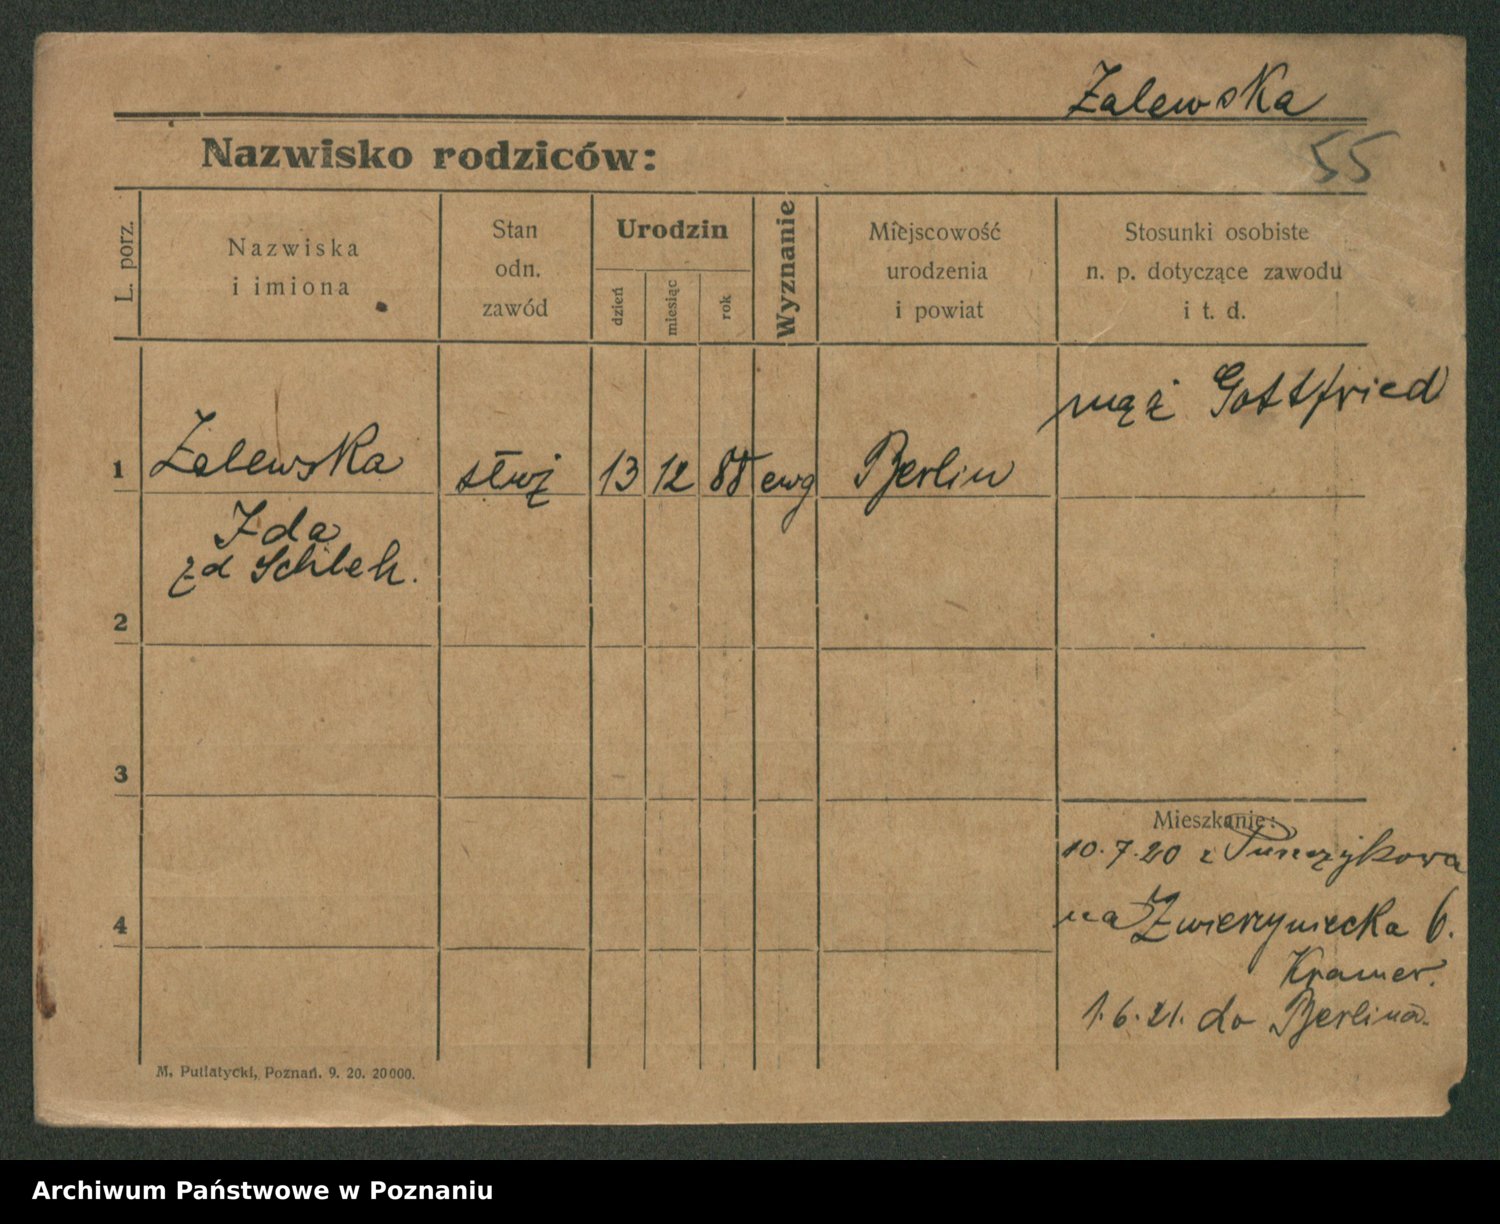 Zalewska
55
Nazwisko rodziców:
L. porz.
Nazwiska
i imiona
Stan
odn.
zawód
Urodzin
dzień
miesiąc
rok
Wyznanie
Miejscowość
urodzenia
i powiat
Stosunki osobiste
n. p. dotyczące zawodu
i t. d.
mąż Gottfried
1 Zalewska służ 13 12 88 ewg Berlin
Ida
zd Schleh.
2
3
Mieszkanie:
10.7.20 z
4
na Zwierzyniecka 6.
Kramer.
1.6.21. do Berlina.
M. Putiatycki, Poznań. 9. 20. 20000.
Archiwum Państwowe w Poznaniu